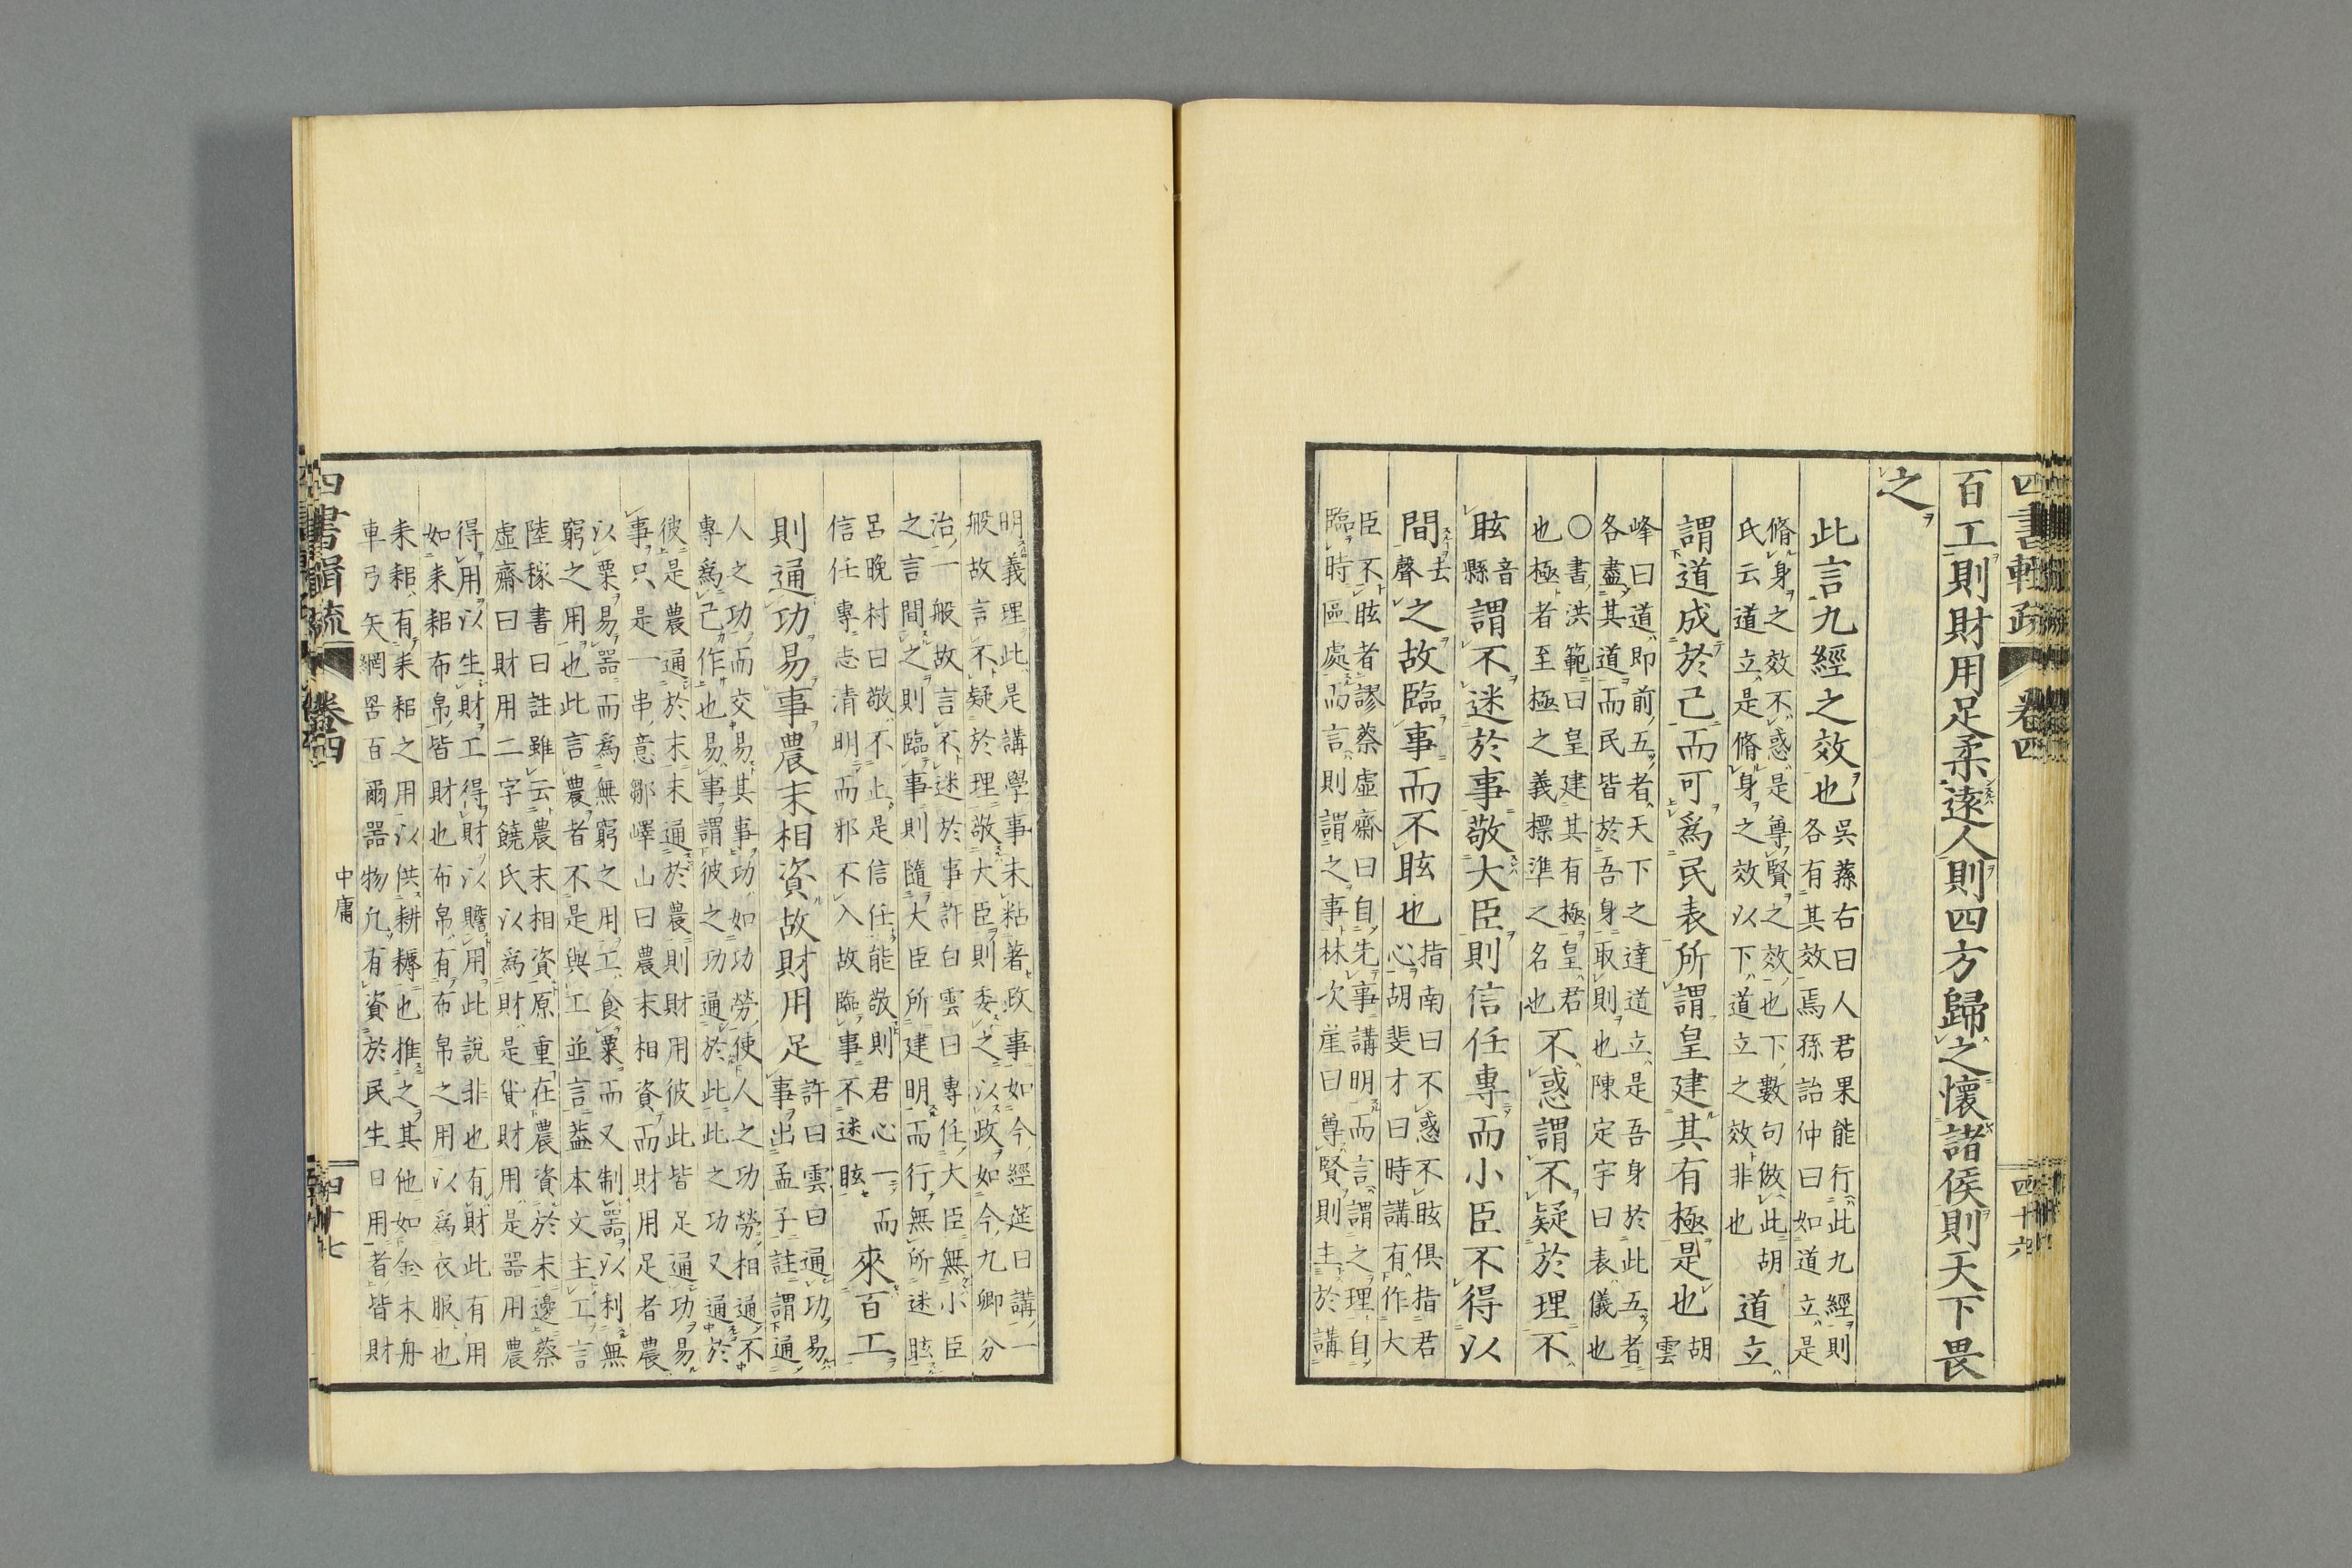 四書輯疏 卷四 四十六
百工則財用足柔遠人則四方歸之懷諸侯則天下畏
之
此言九經之效也
吳蓀右曰人君果能行此九經則
各有其效焉孫詒仲曰如道立是
脩身之效不惑是尊賢之效也下數句倣此胡
氏云道立是脩身之效以下道立之效非也
道立
謂道成於己而可爲民表所謂皇建其有極是也
胡
雲
峰曰道即前五者天下之達道立是吾身於此五者
各盡其道而民皆於吾身取則也陳定宇曰表儀也
○書洪範曰皇建其有極皇君
也極者至極之義標準之名也
不惑謂不疑於理不
眩
音
縣
謂不迷於事敬大臣則信任專而小臣不得以
間
去
聲
之故臨事而不眩也
指南曰不惑不眩俱指君
心胡斐才曰時講有作大
臣不眩者謬蔡虛齋曰自先事講明而言謂之理自
臨時區處而言則謂之事林次崖曰尊賢則主於講
明義理此是講學事未粘著政事如今經筵日講一
般故言不疑於理敬大臣則委之以政如今九卿分
治一般故言不迷於事許白雲曰專任大臣無小臣
之言間之則臨事則隨大臣所建明而行無所迷眩
呂晚村曰敬不止是信任能敬則君心一而
信任專志清明而邪不入故臨事不迷眩
來百工
則通功易事農末相資故財用足
許曰雲曰通功易
事出孟子註謂通
人之功而交易其事功如功勞使人之功勞相通不
專爲己作也易事謂彼之功通於此此之功又通於
彼是農通於末末通於農則財用彼此皆足通功易
事只是一串意鄒嶧山曰農末相資而財用足者農
以粟易器而爲無窮之用工食粟而又制器以利無
窮之用也此言農者不是與工並言葢本文主工言
陸稼書曰註雖云農末相資原重在農資於末邊蔡
虛齋曰財用二字饒氏以爲財是貨財用是器用農
得用以生財工得財以贍用此說非也有財此有用
如耒耜布帛皆財也布帛有布帛之用以爲衣服也
耒耜有耒耜之用以供耕耨也推之其他如金木舟
車弓矢網罟百爾器物凡有資於民生日用者皆財
中庸
四書輯疏 卷四 四十七